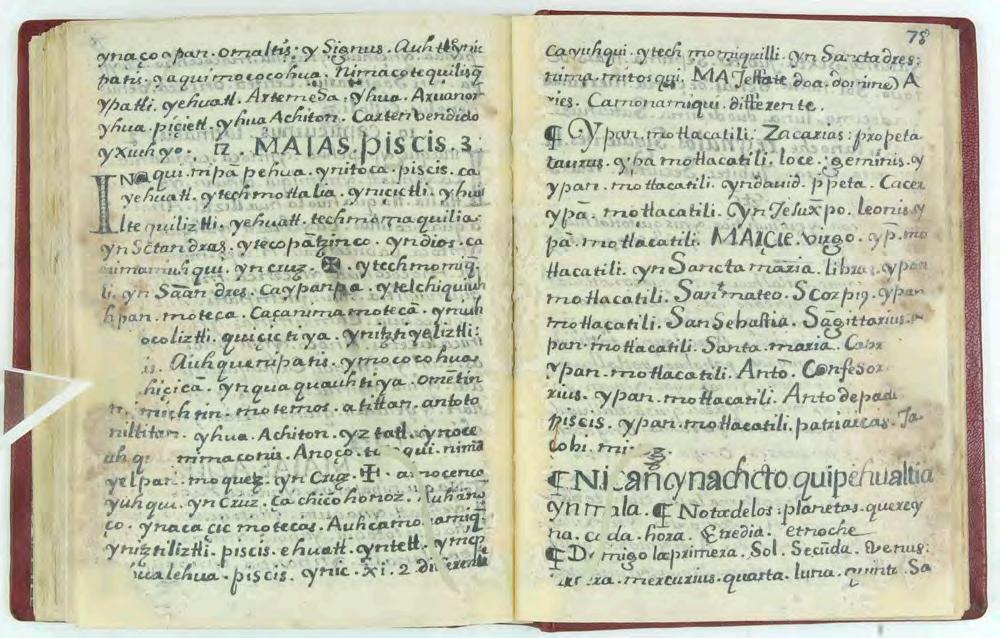 ynaço apan. omaltis: y Signus. Auh
patis. yaquimococohua. Nimacotequilisq̄
ypatli. yehuatl. Artemesa. yhua. Axuanor
yhua. piçiett. yhua Achiton. Caxtenvendido
yxuhyo. 12. MAIAS. piscis. 3.
INaqui. mpa pehua. ynitoca. piscis. ca
yehuatl. ytechmottalia. ynicictli. yhui
lte quiliztli. yehuatl. techmomaquilia.
yn Sctandras. ytecopātzinco. yndios. ca
yn cruz. ✠. ytechmomiq̄
li. yn Sāan dres. Caypanpa. ytelchiquiuh
hpan. moteca. Caçanimamotecā. ymuh
ocoliztli. quiçictiya. ynitztiyeliztli:
is. Auhquenipatis. ymococohua,
hicicā. ynquaquauhtiya. Ometin
michtin. motemos. atittan. antoto
niltitan. yhua. Achiton. yztatl. ynoce
uh q nimaconis. Anoço. quinima
yelpan. moquetz. yn Cruz. ✠. anocenca
yuhqui. yn Cruz. Cachicohonoz. Auhino
ço. ynacacic motecas. Auhcamo. amiq̄
ynitztiliztli. piscis. ehuatl. yntetl. ynicp
hualehua. piscis. ynic. xi. 2
78
cayuhqui. ytech momiquilli. yn Sancta dres:
nima. mitosqui. MAJestate doa. domine) A
ries. Camonamiqui. differente.
¶ Ypan. motlacatili. Zacarias: propeta
taurus. ypā motlacatili. loce. geminis. y
ypan. motlacatili. yndauid. ppeta. Cacer
ypā. motlacatili. Yn Jesux̄po. leonis. y
pā. motlacatili. MARCIE. virgo. yp. mo
tlacatili. yn Sancta maria. libra. ypan
motlacatili. Sant mateo. Scorpig. ypan
motlacatili. San Sebastia. Sāgittarius.
pan. motlacatili. Santa. maria. Capr
ypan. motlacatili. Anto. Confesor.
rius. ypan. motlacatili. Anto de padu
piscis. ypan. motlacatili. patriarcas. Ja
cobi. mi
¶ Nican ynachcto. quipehualtia
yn la. ¶ Nota delos: planetas. quereyi
na. cada. hora. Etredia. etnoche
¶ Domigo la primera. Sol. Secūda. Venus:
mercurius. quarta. luna. quinta. Sa